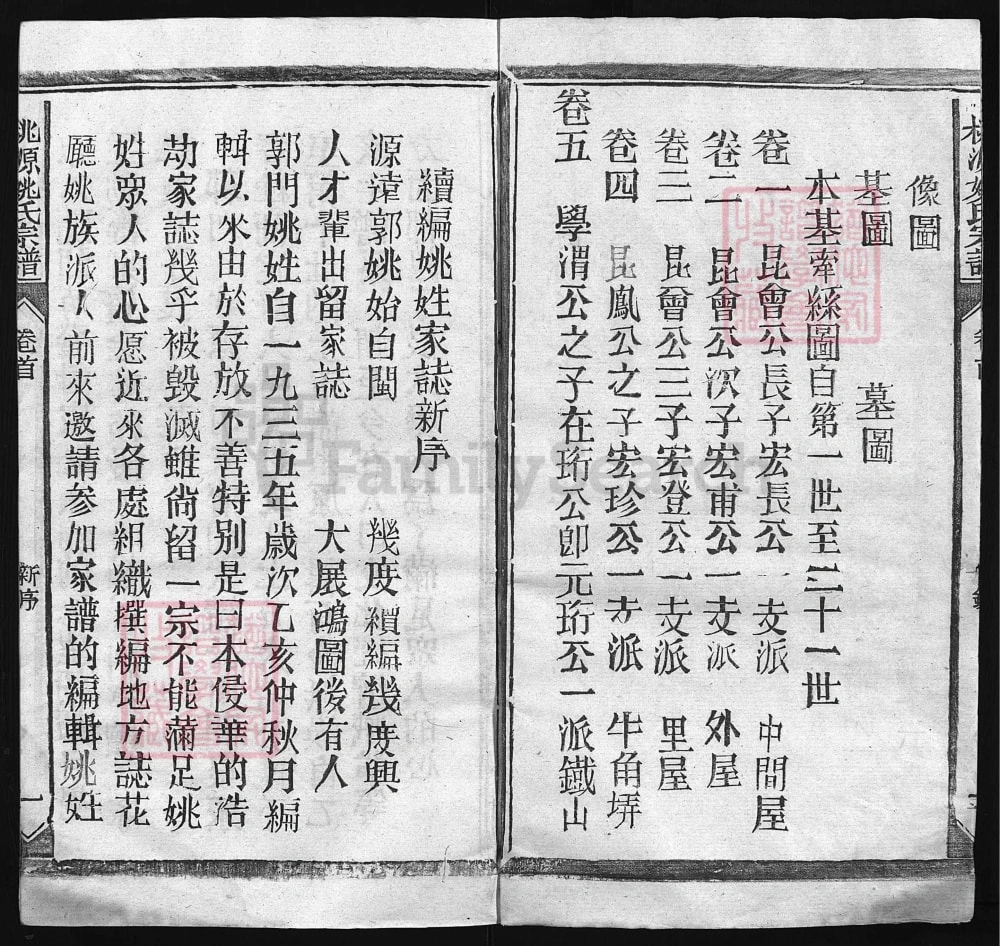 桃源姚氏宗譜
像圖
墓圖 墓圖
本基牽絲圖自第一世至二十一世
卷一 昆會公長子宏長公一支派 中間屋
卷二 昆會公次子宏甫公一支派 外屋
卷三 昆會公三子宏登公一支派 里屋
卷四 昆鳳公之子宏珍公一支派 牛角塀
卷五 學渭公之子在珩公卽元珩公一派鐵山
續編姚姓家誌新序
源遠郭姚始自閩 幾度續編幾度興
人才輩出留家誌 大展鴻圖後有人
郭門姚姓自一九三五年歲次乙亥仲秋月編
輯以來由於存放不善特別是日本侵華的浩
劫家誌幾乎被毀滅雖尚留一宗不能滿足姚
姓眾人的心愿近來各處組織撰編地方誌花
廳姚族派人前來邀請參加家譜的編輯姚姓
桃源姚氏宗譜 卷首 新序 一
FamilySearch